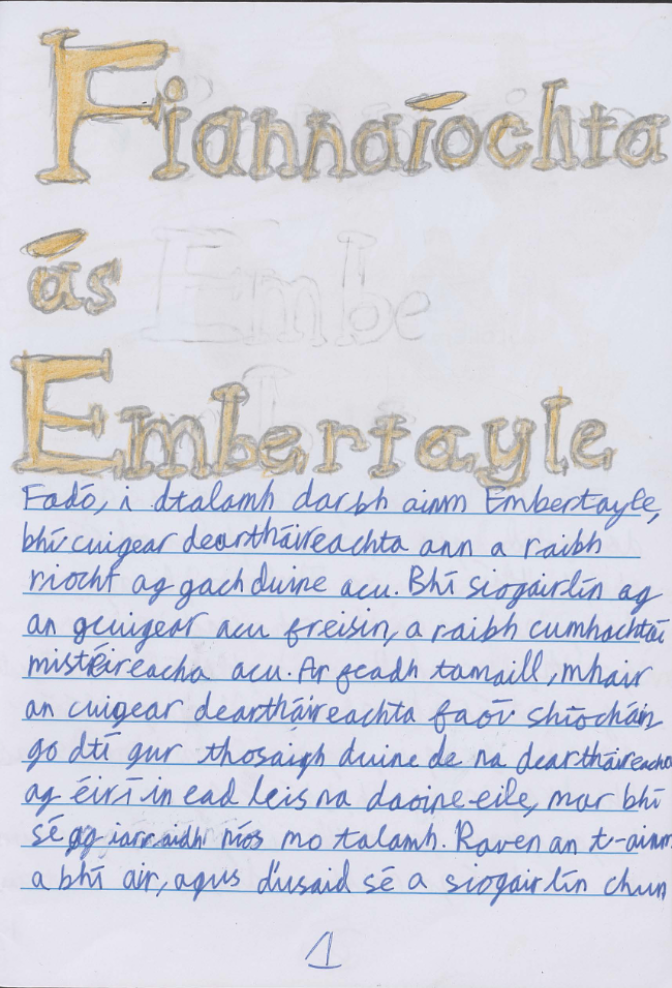 Fiannaíochta
ás
Embe
Embertayle
Fadó, i dtalamh darbh ainm Embertayle,
bhí cuigear deartháireachta ann a raibh
riocht ag gach duine acu. Bhí siogairlín ag
an gcuigear acu freisin, a raibh cumhachtaí
mistéireacha acu. Ar feadh tamaill, mhair
an cuigear deartháireachta faoi shíocháin
go dtí gur thosaigh duine de na deartháireacha
ag éirí in ead leis na daoine eile, mar bhí
sé ag iarraidh níos mo talamh. Raven an t-ainm
a bhí air, agus d'usaid sé a siogairlín chun
1